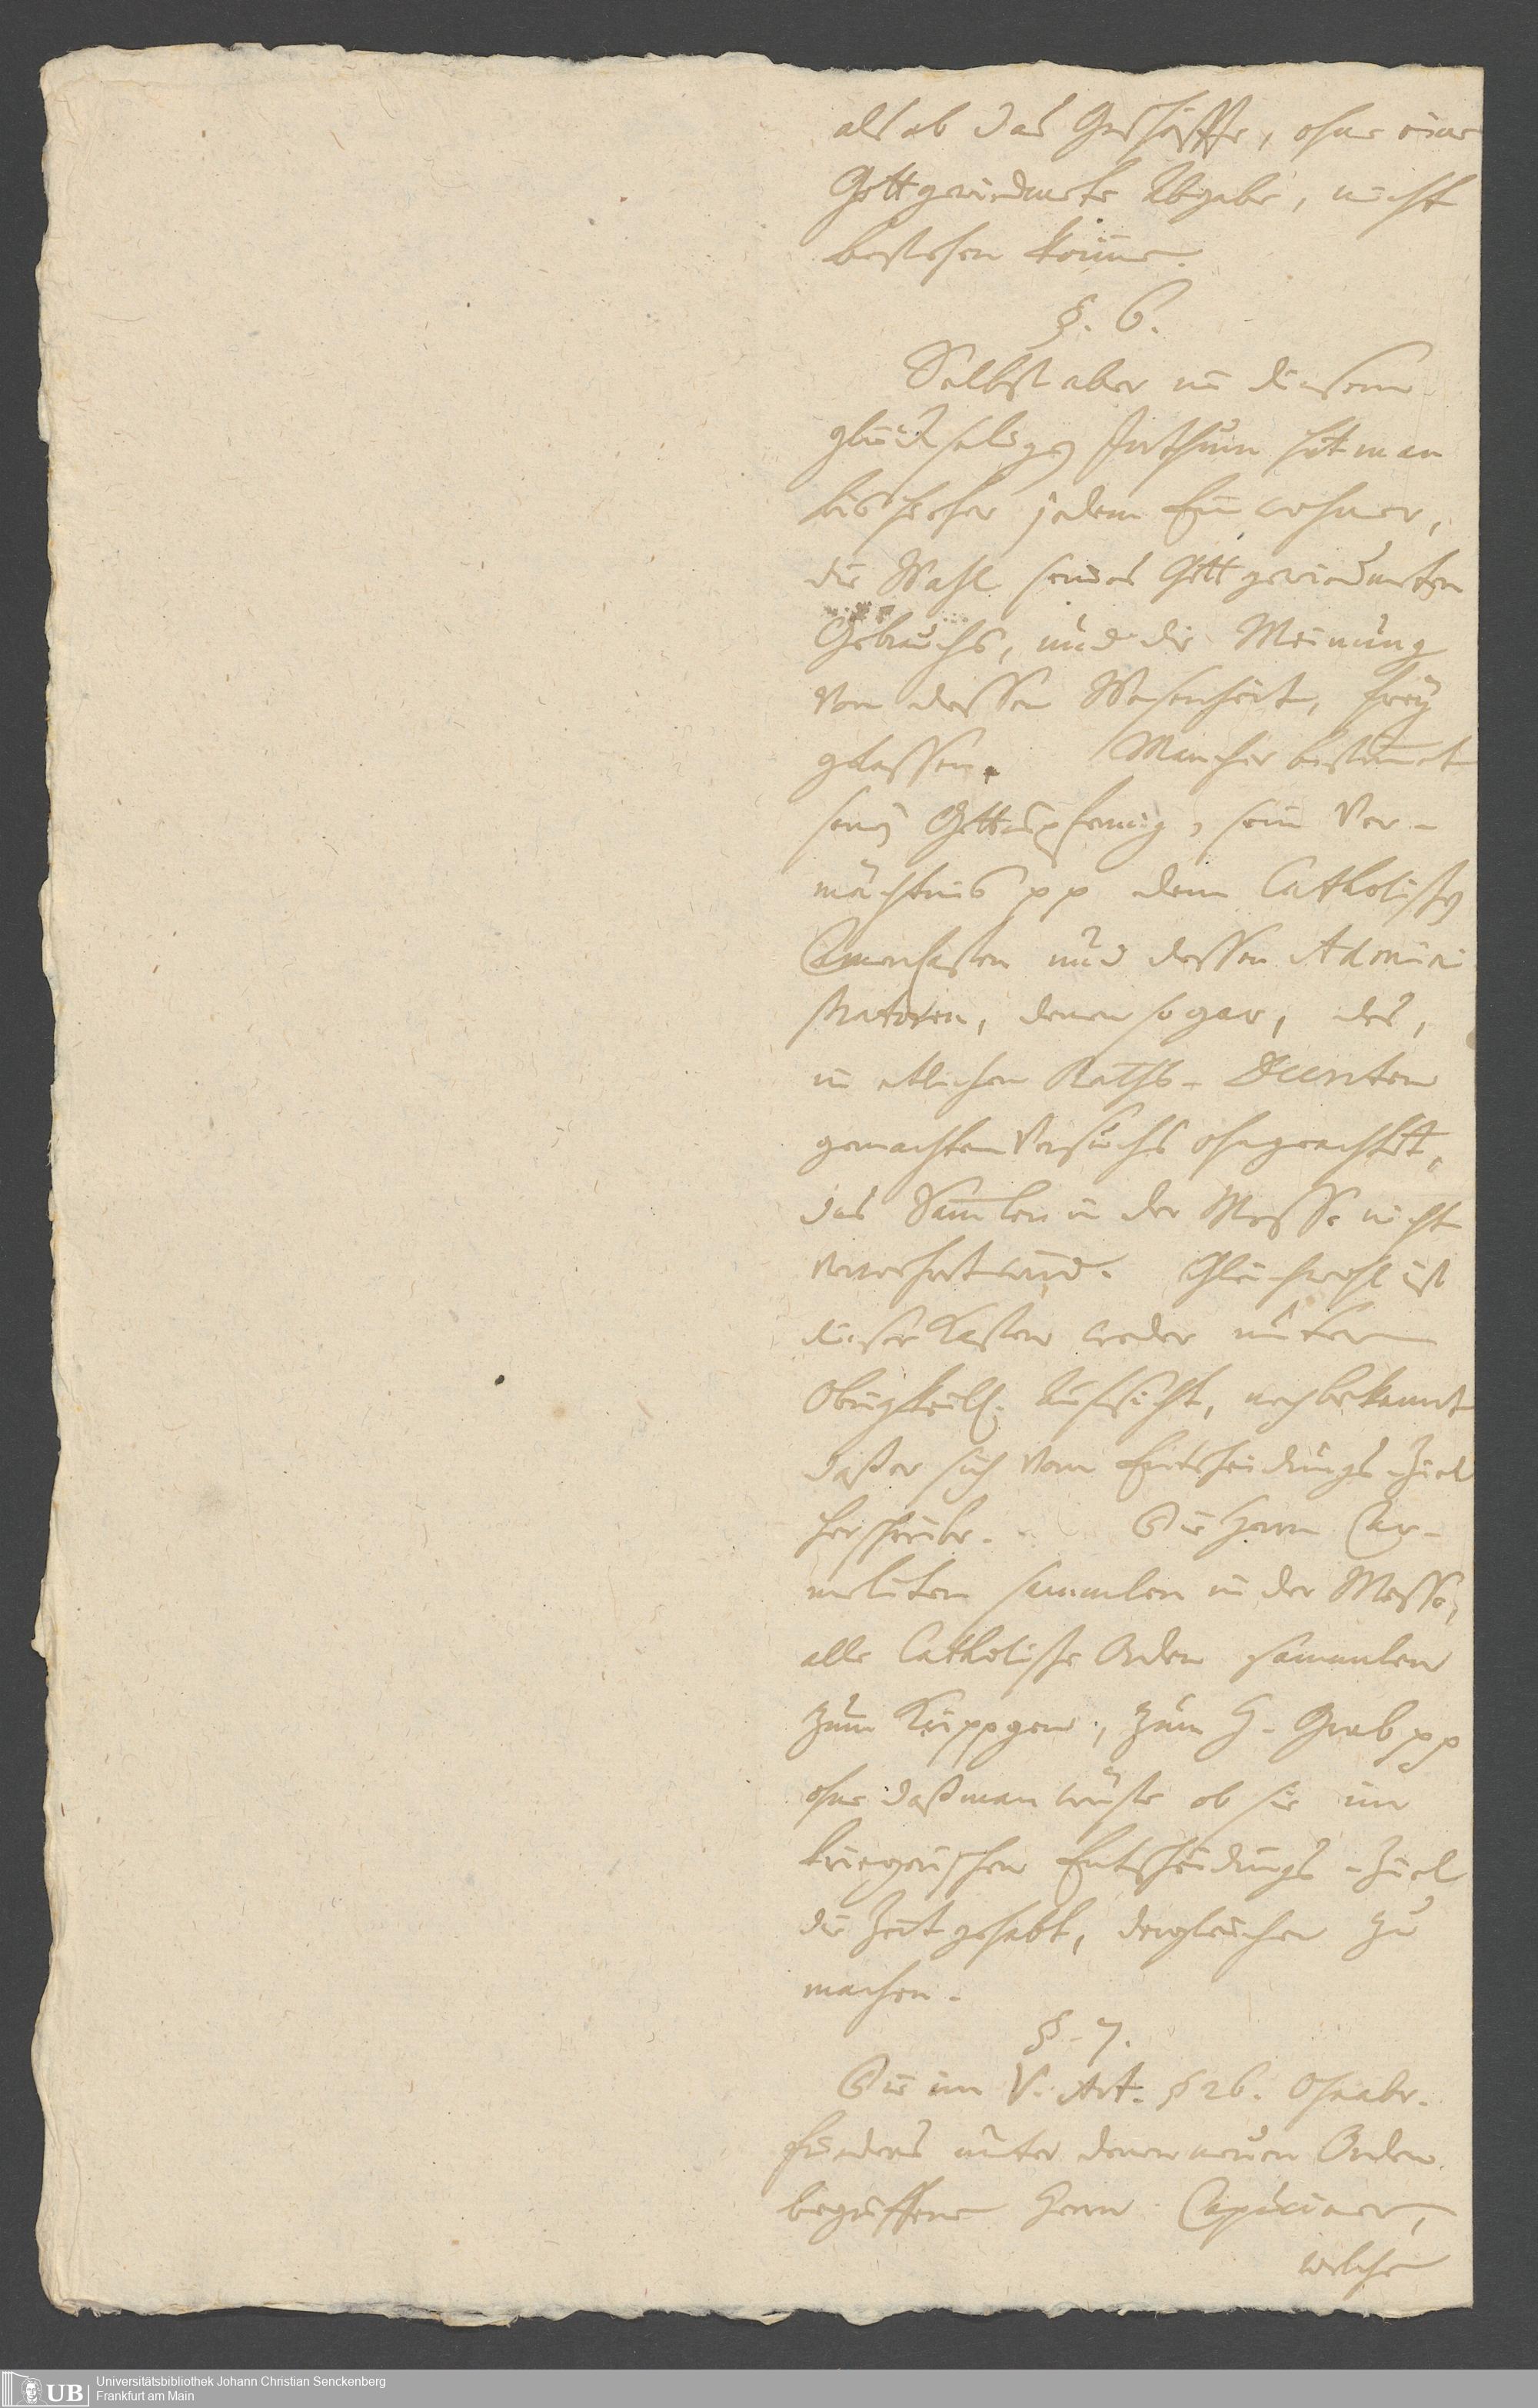 als ob das Geschäffte, ohne eine
Gott gewiedmete Abgabe, nicht
bestehen könne.
§. 6.
Selbst aber in diesem
glückseligen Irrthum hat man
bishieher jedem Einwohner,
die Wahl seines Gott gewiedmeten
Gebrauchs, und die Meinung
von dessen Wesenheit, frey
gelassen. Mancher bestimmet
seinen Gottespfennig, sein Ver-
mächtnis pp dem Catholischen
Armenkasten und dessen Admini
stratoren, denen sogar, des,
in etlichen Raths-Decreten
gemachten Versuchs ohngeachtet,
das Samlen in der Messe nicht
verwehret wird. Gleichwohl ist
dieser Kasten weder unter
Obrigkeitl. Aufsicht, noch bekannt
daß er sich vom Entscheidungs-Ziel
herschreibe. Die Herrn Car-
meliten sammlen in der Messe,
alle Catholische Orden sammlen
zum Krippgen, zum H. Grab pp
ohne daß man wüste ob sie im
kriegerischen Entscheidungs-Ziel
die Zeit gehabt, dergleichen zu
machen.
§. 7.
Die im V. Art. § 26. Osnabr.
friedens unter denen neuen Orden
begriffene Herrn Capuciner,
welche
Universitätsbibliothek Johann Christian Senckenberg
Frankfurt am Main